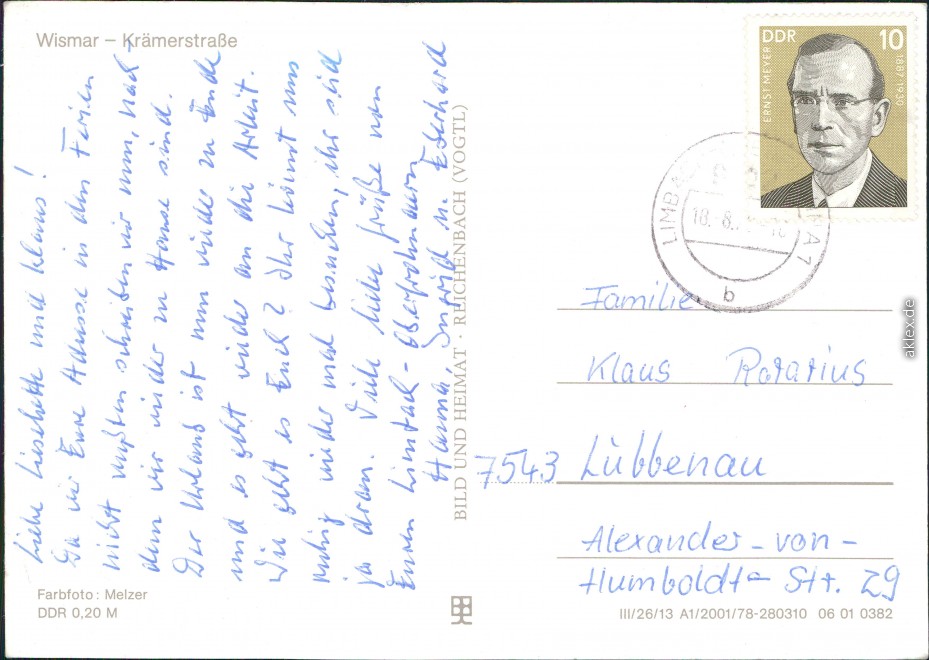 Wismar – Krämerstraße
Liebe Lieselotte und Klaus!
Da wir Eure Adresse in den Ferien
nicht wußten schreiben wir nun, nach-
dem wir wieder zu Hause sind.
Der Urlaub ist nun wieder zu Ende
und es geht wieder an die Arbeit.
Wie geht es Euch? Ihr könnt uns
ruhig wieder mal besuchen, ihr seid
ja dran. Viele liebe Grüße von
Euren Limbach-Oberfrohnaern
Hanna, Ingrid u. Eberhard
Farbfoto: Melzer
DDR 0,20 M
BILD UND HEIMAT · REICHENBACH (VOGTL)
DDR 10
ERNST MEYER 1887-1930
LIMBA
NA 1
18.-8.
b
Familie
Klaus Rotarius
7543 Lübbenau
Alexander-von-
Humboldt-Str. 29
III/26/13 A1/2001/78-280310 06 01 0382
aklex.de